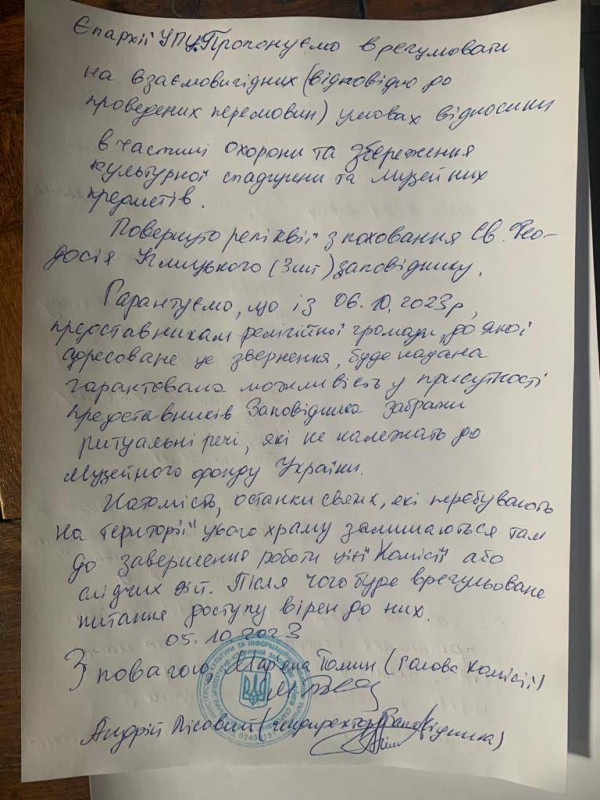 Єпархії УПЦ. Пропонуємо врегумовати
на взаємовигідних (відповідно до
проведених перемовин) умовах відносини
в частині охорони та збереження
культурної спадщини та музейних
предметів.
Повернуто реліквії з поховання Св. Фео-
досія Углицького (3шт) заповіднику.
Гарантуємо, що із 06.10.2023р,
представникам релігійної громади, до якої
адресоване це звернення, буде надана
гарантована можливість у присутності
представників Заповідника забрати
ритуальні речі, які не належать до
Музейного фонду України.
Натомість, останки святих, які перебувають
на території цього храму залишаються там
до завершення роботи цієї Комісії або
слідчих дій. Після чого буде врегульоване
питання доступу вірян до них.
05.10.2023
З повагою, Марина Томин (Голова комісії)
Андрій Лісовий (гендиректор Заповідника)